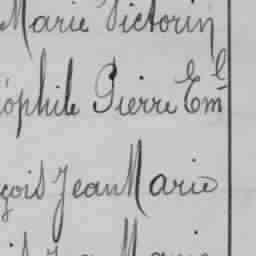 Marie Victorin
éophile Pierre Em^l
çois Jean Marie